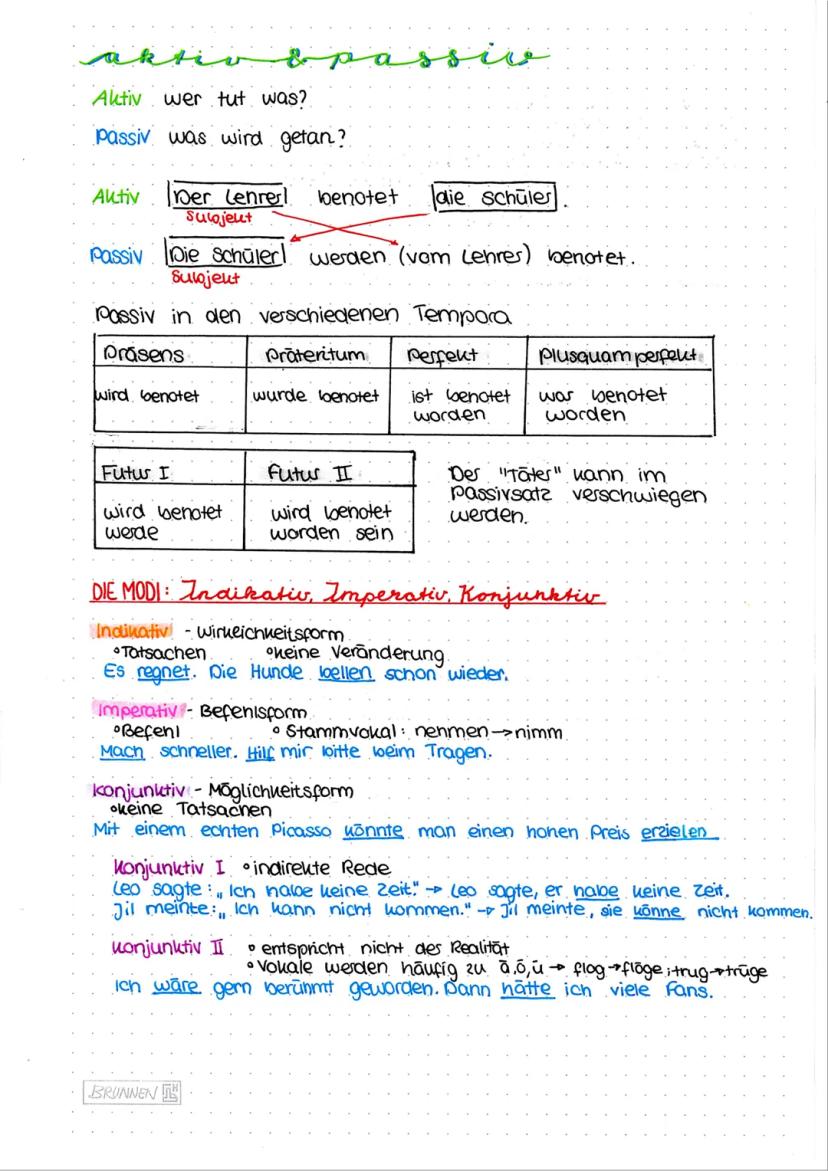 aktiv & passiv
Aktiv wer tut was?
Passiv was wird getan?
Aktiv Der Lehrer benotet die Schüler.
Subjekt
Passiv Die Schüler werden (vom Lehrer) benotet.
Subjekt
Passiv in den verschiedenen Tempora
Präsens Präteritum Perfekt Plusquamperfekt
wird benotet wurde benotet ist benotet war benotet
worden worden
Futur I Futur II
wird benotet wird benotet
werde worden sein
Der "Täter" kann im
Passivsatz verschwiegen
werden.
DIE MODI: Indikativ, Imperativ, Konjunktiv
Indikativ - Wirklichkeitsform
°Tatsachen °keine Veränderung
Es regnet. Die Hunde bellen schon wieder.
Imperativ - Befehlsform
°Befehl ° Stammvokal: nehmen → nimm
Mach schneller. Hilf mir bitte beim Tragen.
Konjunktiv - Möglichkeitsform
°keine Tatsachen
Mit einem echten Picasso könnte man einen hohen Preis erzielen
Konjunktiv I °indirekte Rede
Leo sagte: „Ich habe keine Zeit." → Leo sagte, er habe keine Zeit.
Jil meinte: „Ich kann nicht kommen." → Jil meinte, sie könne nicht kommen.
Konjunktiv II ° entspricht nicht der Realität
°Vokale werden häufig zu ä,ö,ü → flog→flöge; trug→trüge
Ich wäre gern berühmt geworden. Dann hätte ich viele Fans.
BRUNNEN